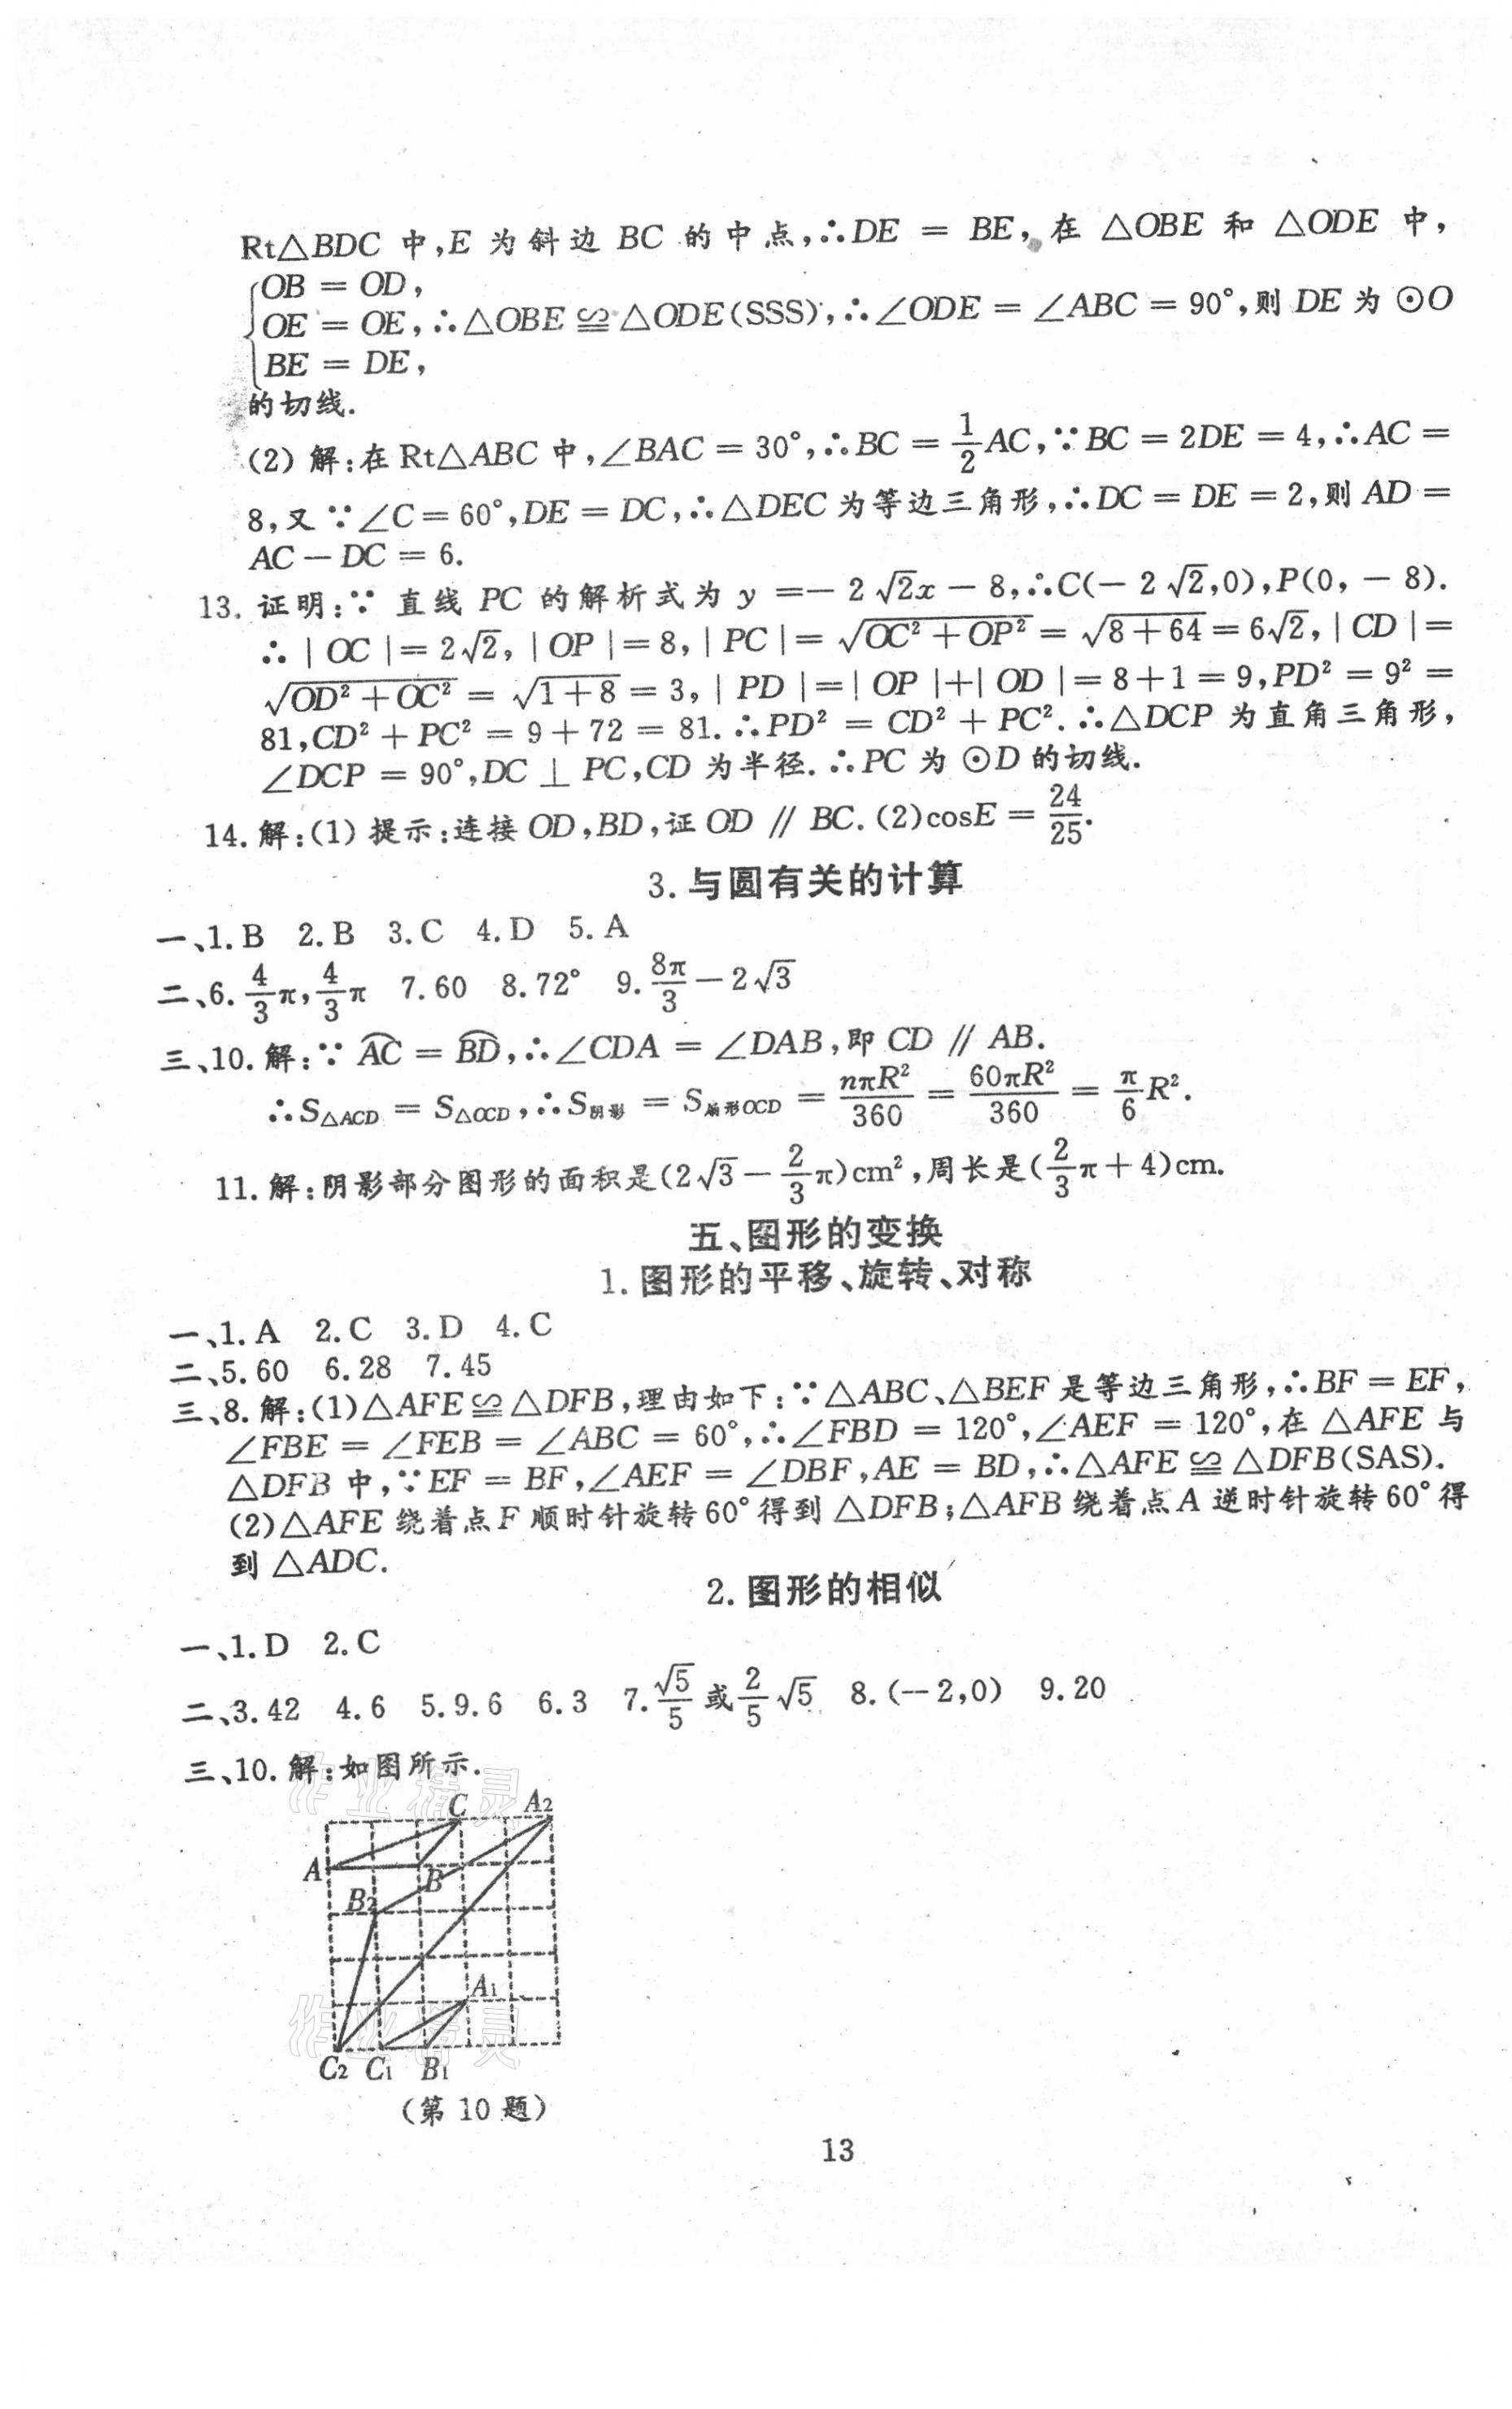 Rt△BDC 中,E 为斜边 BC 的中点,∴DE = BE,在 △OBE 和 △ODE 中,
OB = OD,
OE = OE,∴△OBE≌△ODE(SSS),∴∠ODE = ∠ABC = 90°,则 DE 为 ⊙O
BE = DE,
的切线.
(2) 解:在 Rt△ABC 中,∠BAC = 30°,∴BC = 1/2 AC,∵BC = 2DE = 4,∴AC =
8,又 ∵∠C = 60°,DE = DC,∴△DEC 为等边三角形,∴DC = DE = 2,则 AD =
AC − DC = 6.
13. 证明:∵ 直线 PC 的解析式为 y =− 2√2x − 8,∴C(− 2√2,0),P(0, − 8).
∴ | OC |= 2√2, | OP |= 8, | PC |= √(OC² + OP²) = √(8 + 64) = 6√2, | CD |=
√(OD² + OC²) = √(1 + 8) = 3, | PD |=| OP |+| OD |= 8 + 1 = 9,PD² = 9² =
81,CD² + PC² = 9 + 72 = 81. ∴PD² = CD² + PC². ∴△DCP 为直角三角形,
∠DCP = 90°,DC ⊥ PC,CD 为半径. ∴PC 为 ⊙D 的切线.
14. 解:(1) 提示:连接 OD,BD,证 OD // BC. (2)cosE = 24/25.
3. 与圆有关的计算
一、1. B 2. B 3. C 4. D 5. A
二、6. 4/3 π, 4/3 π 7. 60 8. 72° 9. 8π/3 − 2√3
三、10. 解:∵ A͡C = B͡D,∴∠CDA = ∠DAB,即 CD // AB.
∴S△ACD = S△OCD,∴S阴影 = S扇形OCD = nπR²/360 = 60πR²/360 = π/6 R².
11. 解:阴影部分图形的面积是(2√3 − 2/3 π)cm²,周长是(2/3 π + 4)cm.
五、图形的变换
1. 图形的平移、旋转、对称
一、1. A 2. C 3. D 4. C
二、5. 60 6. 28 7. 45
三、8. 解:(1)△AFE≌△DFB,理由如下:∵△ABC、△BEF 是等边三角形,∴BF = EF,
∠FBE = ∠FEB = ∠ABC = 60°,∴∠FBD = 120°,∠AEF = 120°,在 △AFE 与
△DFB 中,∵EF = BF,∠AEF = ∠DBF,AE = BD,∴△AFE≌△DFB(SAS).
(2)△AFE 绕着点 F 顺时针旋转 60°得到 △DFB;△AFB 绕着点 A 逆时针旋转 60°得
到 △ADC.
2. 图形的相似
一、1. D 2. C
二、3. 42 4. 6 5. 9.6 6. 3 7. √5/5 或 2/5 √5 8. (−2,0) 9. 20
三、10. 解:如图所示.
作业精灵
C A₂
A
B
B₂
A₁
作业精灵
C₂ C₁ B₁
(第 10 题)
13